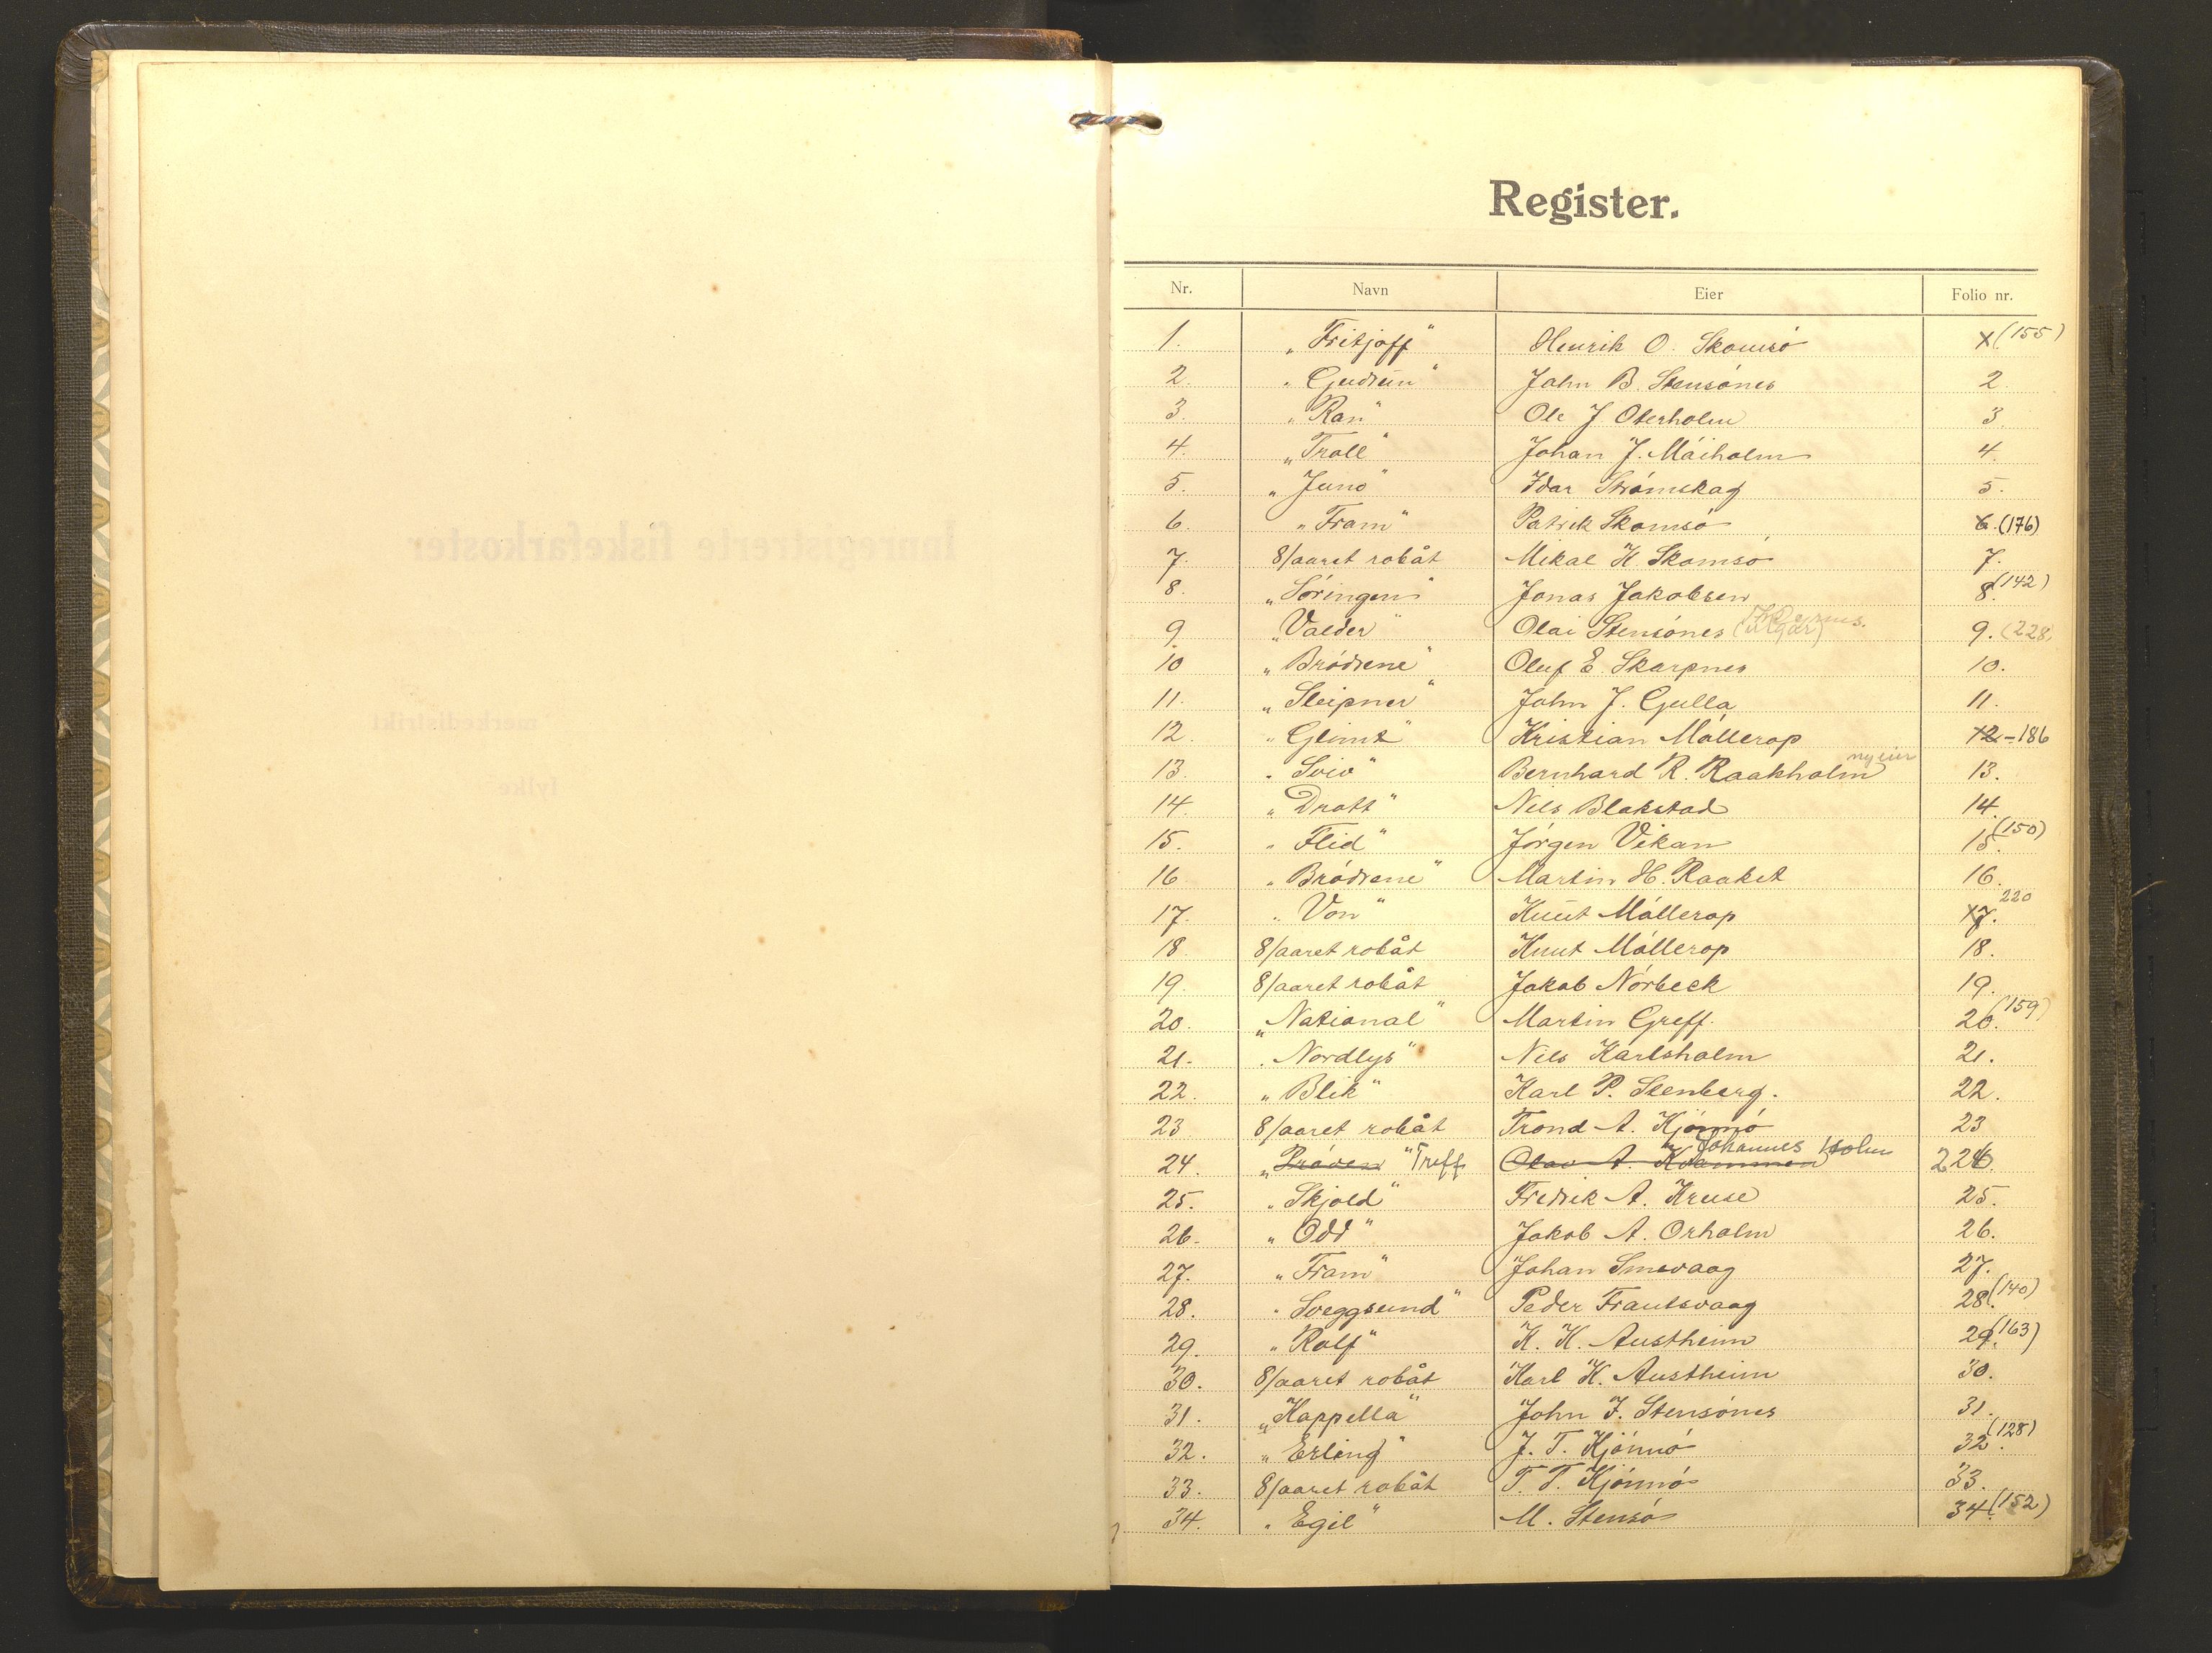 Register.
Nr. Navn Eier Folio nr.
1. „Fritjoff" Henrik O. Skomsö 1 (155)
2. „Gudrun" John B. Stensönes 2
3. „Ran" Ole J Oterholm 3.
4. „Troll" Johan J. Måiholm 4.
5. „Juno" Idar Strömskag 5.
6. „Fram" Patrik Skomsö 6. (176)
7. 8/aaret robåt Mikal H. Skomsö 7.
8. „Söringen" Jonas Jakobsen 8. (142)
9. „Valder" Olai Stensönes 9. (228)
10 „Brödrene" Oluf E. Skarpnes 10.
11. „Sleipner" John J. Gulla 11.
12. „Glimt" Kristian Möllerop 12 - 186
ny eier
13. „Sviv" Bernhard R. Raakholm 13.
14. „Drott" Nils Blakstad 14.
15. „Flid" Jörgen Vikan 15. (150)
16 „Brödrene" Martin H. Raaket 16.
17. „Von" Knut Möllerop 17. 220
18 8/aaret robåt Knut Möllerop 18.
19. 8/aaret robåt Jakob Nörbeck 19.
20. „National" Martin Greff. 20. (159)
21. „Nordlys" Nils Karlsholm 21.
22. „Blik" Karl P. Stenberg. 22.
23 8/aaret robåt Trond A. Kjönnö 23
Johannes Holm
24. „Pröven" "Treff Olav A. Kvammen 226
25. „Skjold" Fredrik A. Kruse 25.
26. „Odd" Jakob A. Orholm 26.
27. „Fram" Johan Smevaag 27.
28. „Sveggsund" Peder Frantsvaag 28. (140)
29. „Rolf" K. K. Austheim 29. (163)
30. 8/aaret robåt Karl K. Austheim 30.
31. „Kappella" John J. Stensönes 31.
32. „Erling" J. T. Kjönnö 32. (128)
33. 8/aaret robåt T. T. Kjönnö 33.
34. „Egil" M. Stensö 34. (152)